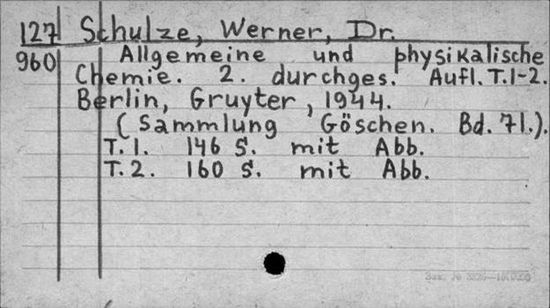 127 Schulze, Werner, Dr.
960 Allgemeine und physikalische
Chemie. 2. durchges. Aufl. T.1-2.
Berlin, Gruyter, 1944.
(Sammlung Göschen. Bd. 71.).
T.1. 146 S. mit Abb.
T.2. 160 S. mit Abb.